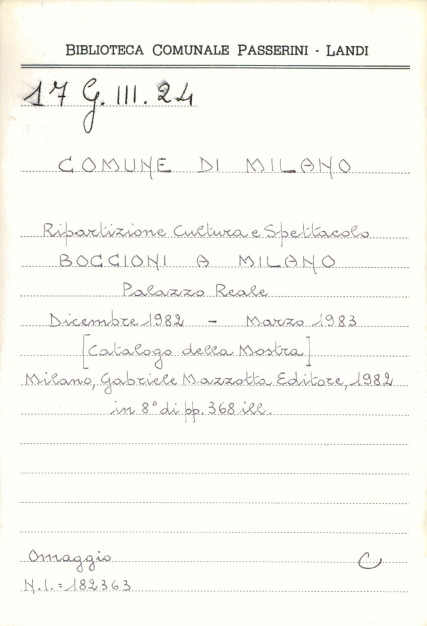 BIBLIOTECA COMUNALE PASSERINI - LANDI
17 G. III. 24
COMUNE DI MILANO
Ripartizione Cultura e Spettacolo
BOCCIONI A MILANO
Palazzo Reale
Dicembre 1982 - Marzo 1983
[Catalogo della Mostra]
Milano, Gabriele Mazzotta Editore, 1982
in 8° di pp. 368 ill.
Omaggio C
N.I. = 182363